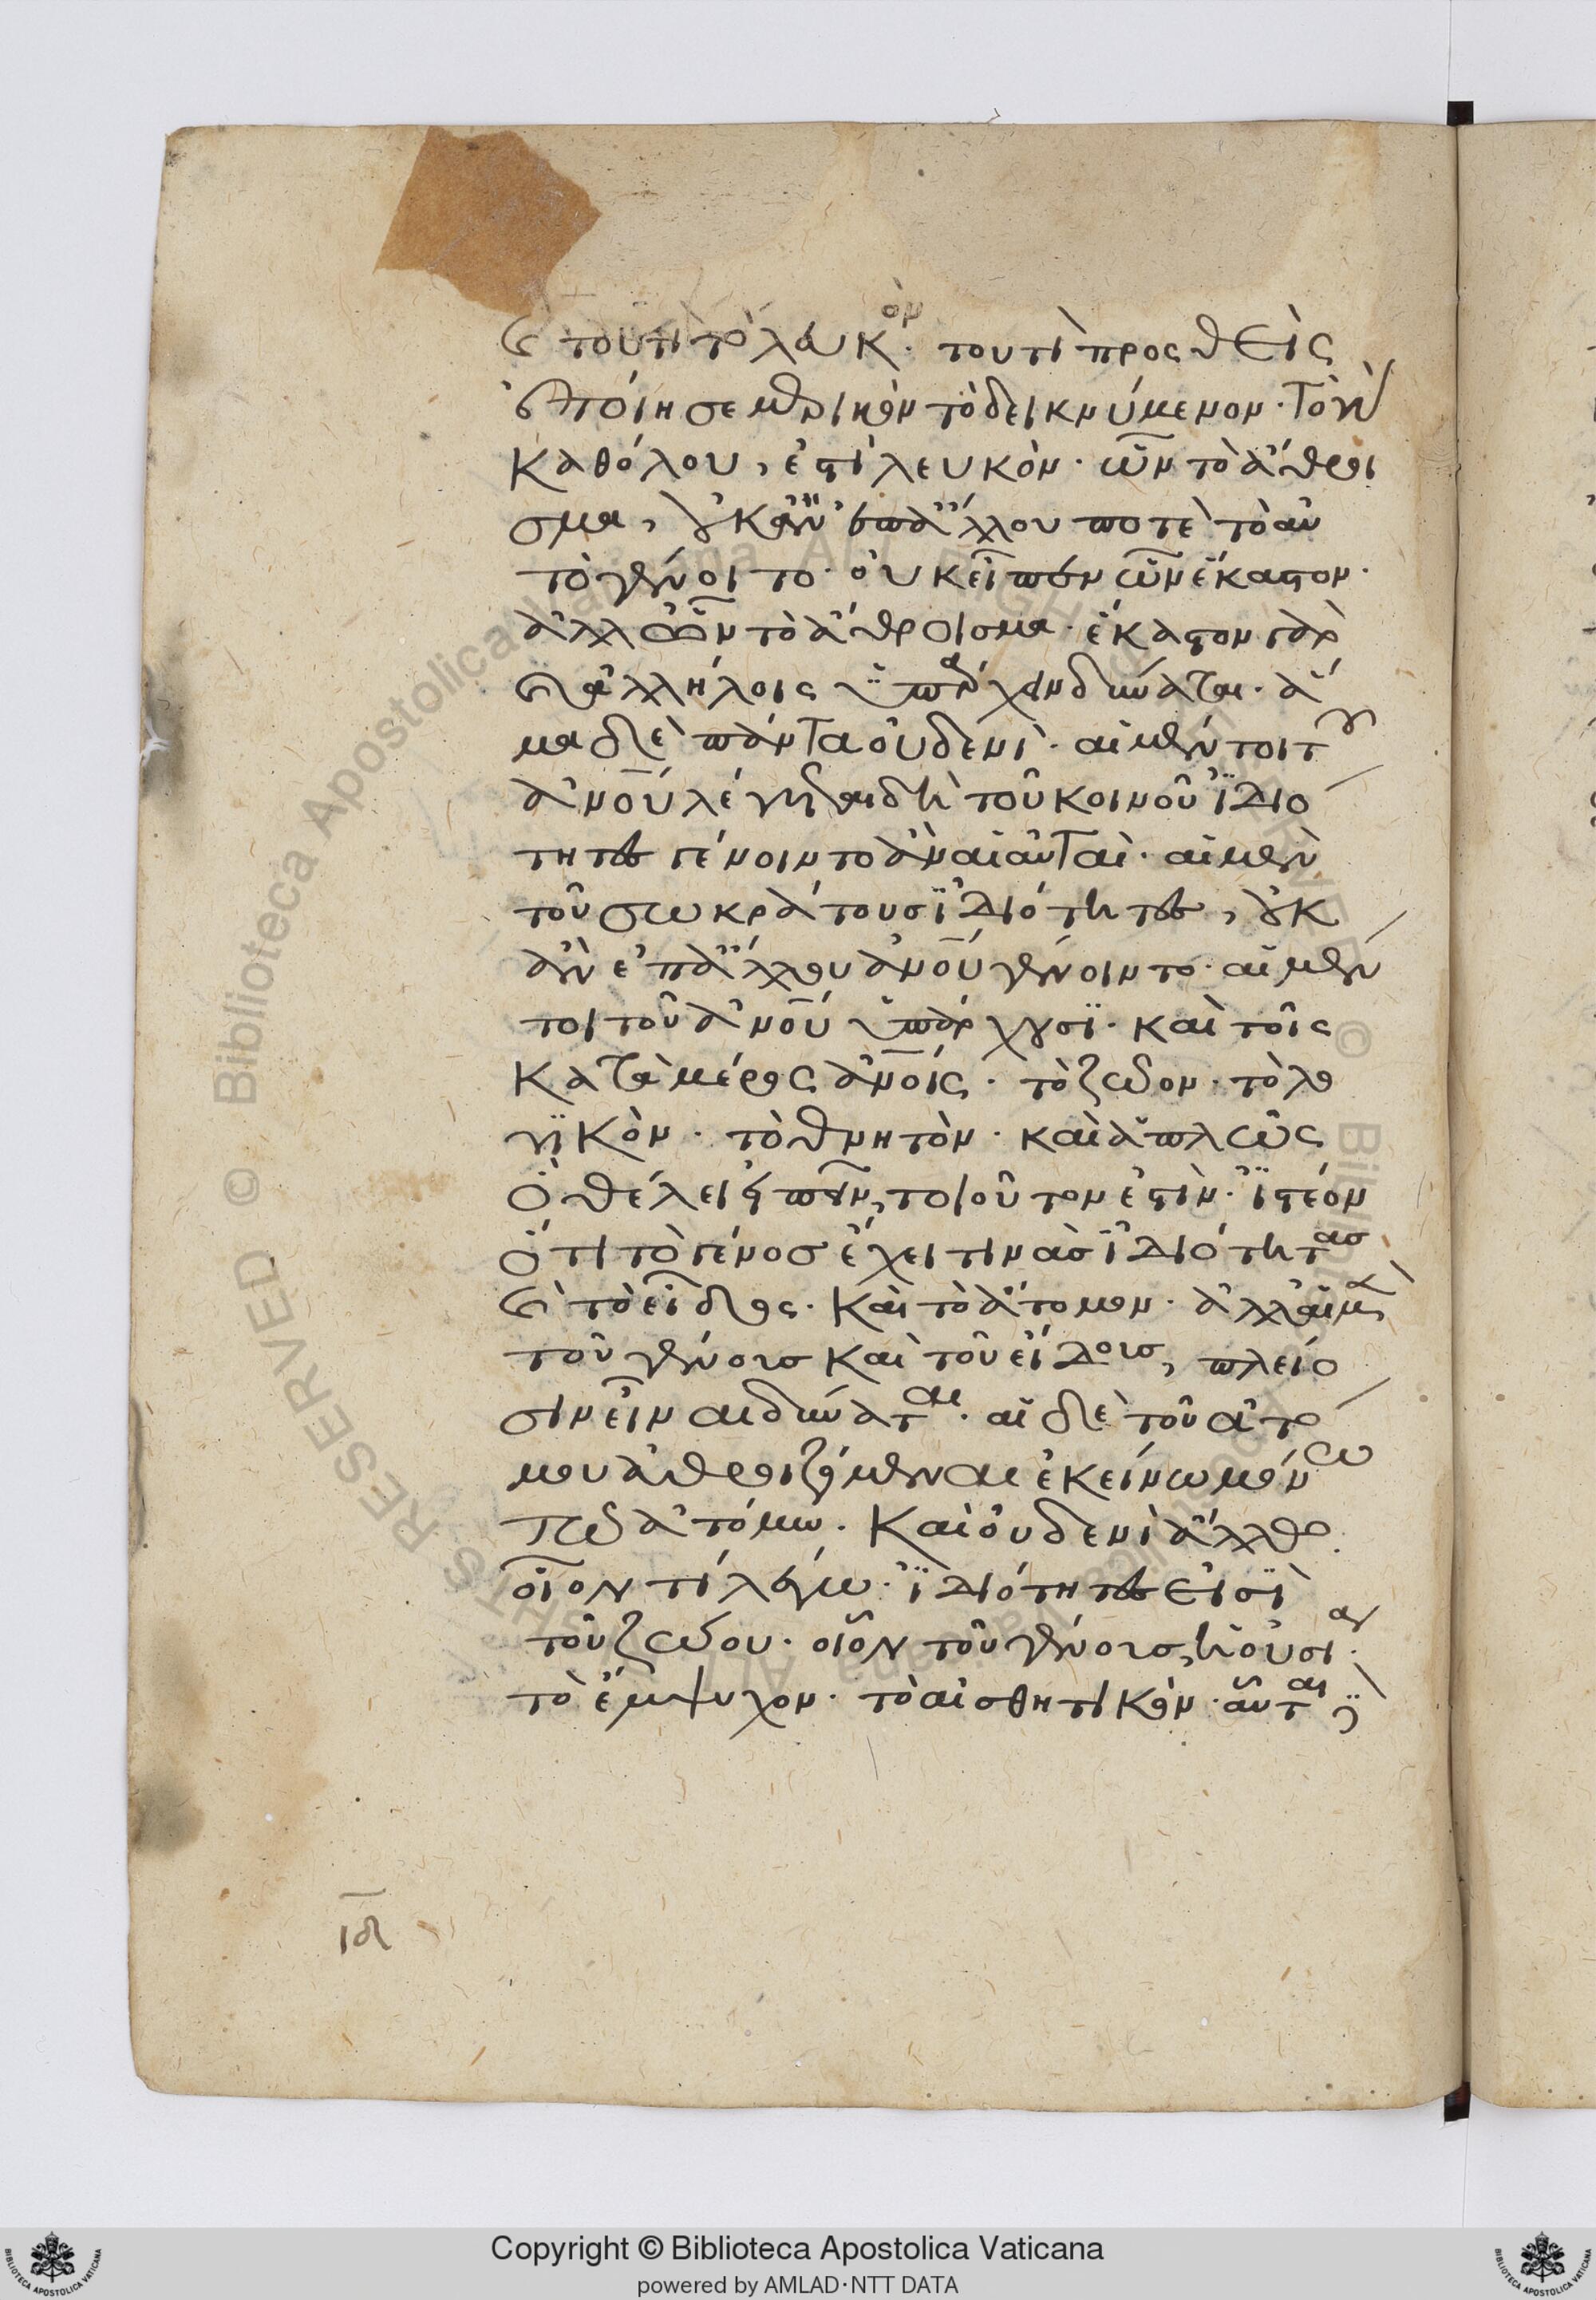 καὶ τουτὶ τὸ λευκὸν. τουτὶ προσθεὶς
ἐποίησε μερικὸν τὸ δεικνύμενον. τὸ γὰρ
καθόλου, ἐστὶ λευκὸν. ὧν τὸ ἄθροι
σμα, οὐκ ἂν ἐπ' ἄλλου ποτὲ τὸ αὐ
τὸ γένοιτο. οὐκ εἶπεν ὧν ἕκαστον.
ἀλλ' ὧν τὸ ἄθροισμα. ἕκαστον γὰρ
ἐν ἀλλήλοις ὑπάρχειν δύναται. ἅ
μα δὲ πάντα οὐδενί. αἱ μέντοι τοῦ
ἀνου λέγω δὴ τοῦ κοινοῦ ἰδιό
τητες γένοιντο ἂν αἱ αὐταὶ. αἱ μὲν
τοῦ σωκράτους ἰδιότητες, οὐκ
ἂν ἐπ' ἄλλου ἀνου γένοιντο. αἱ μέν
τοι τοῦ ἀνου ὑπάρχουσι. καὶ τοῖς
κατὰ μέρος ἀνοις. τὸ ζῶον. τὸ λο
γικὸν. τὸ θνητὸν. καὶ ἁπλῶς
ὃ θέλει εἰπεῖν, τοιοῦτον ἐστὶν. ἰστέον
ὅτι τὸ γένος ἔχει τινὰς ἰδιότητας
καὶ τὸ εἶδος. καὶ τὸ ἄτομον. ἀλλ' αἱ μὲν
τοῦ γένους καὶ τοῦ εἴδους, πλείο
σιν εἶναι δύνανται. αἱ δὲ τοῦ ἀτό
μου ἀθροιζόμεναι ἐκείνω μόνω
τῶ ἀτόμω. καὶ οὐδενὶ ἄλλο.
οἷον τί λέγω. ἰδιότητες εἰσὶ
τοῦ ζώου. οἷον τοῦ γένους, ἡ οὐσία.
τὸ ἔμψυχον. τὸ αἰσθητικὸν. αὗται
ιδ
Copyright © Biblioteca Apostolica Vaticana
powered by AMLAD·NTT DATA